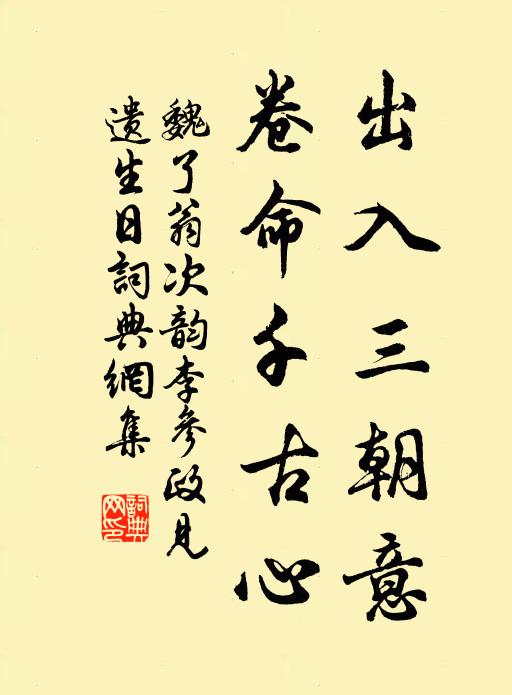 出入三朝意
卷命千古心
魏了翁次韵李参政见
遗生日詞典網集
詞典网印